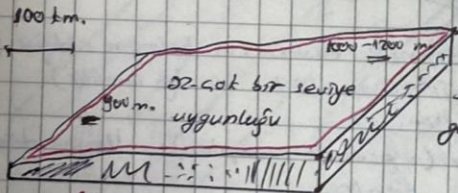 100 km.
1000-1200 m.
az-çok bir seviye
900 m.
uygunluğu